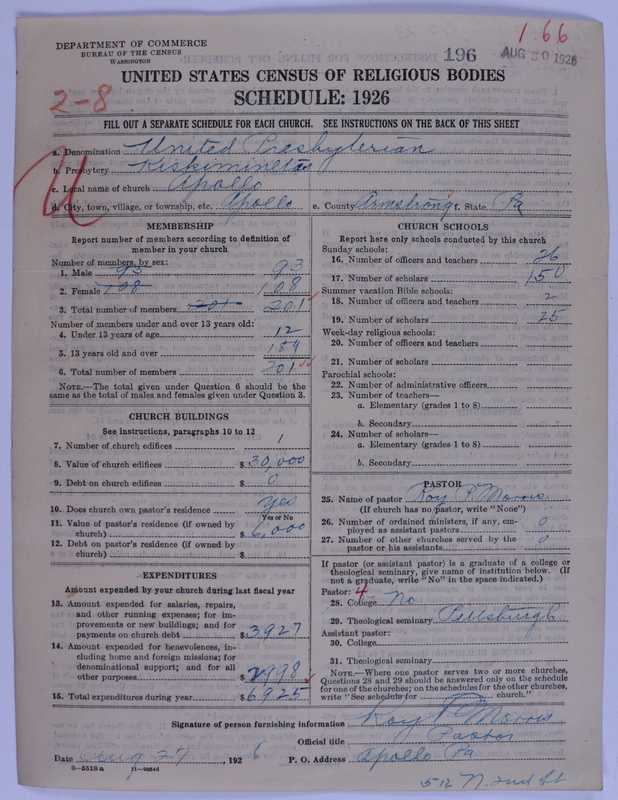 DEPARTMENT OF COMMERCE
BUREAU OF THE CENSUS
WASHINGTON
196
1.66
AUG 30 1926
UNITED STATES CENSUS OF RELIGIOUS BODIES
SCHEDULE: 1926
2-8
FILL OUT A SEPARATE SCHEDULE FOR EACH CHURCH. SEE INSTRUCTIONS ON THE BACK OF THIS SHEET
a. Denomination United Presbyterian
b. Presbytery Kiskiminetas
c. Local name of church Apollo
d. City, town, village, or township, etc. Apollo e. County Armstrong f. State Pa
MEMBERSHIP
Report number of members according to definition of
member in your church
Number of members, by sex:
1. Male 93 93
2. Female 108 108
3. Total number of members 201 201
Number of members under and over 13 years old:
4. Under 13 years of age 12
5. 13 years old and over 189
6. Total number of members 201
NOTE.—The total given under Question 6 should be
same as the total of males and females given under Question 3.
CHURCH BUILDINGS
See instructions, paragraphs 10 to 12
7. Number of church edifices 1
8. Value of church edifices $ 30,000
9. Debt on church edifices $ 0
10. Does church own pastor's residence yes
Yes or No
11. Value of pastor's residence (if owned by
church) $ 6,000
12. Debt on pastor's residence (if owned by
church) $
EXPENDITURES
Amount expended by your church during last fiscal year
13. Amount expended for salaries, repairs,
and other running expenses; for im-
provements or new buildings; and for
payments on church debt $ 3927
14. Amount expended for benevolences, in-
cluding home and foreign missions; for
denominational support; and for all
other purposes $ 2998
15. Total expenditures during year $ 6925
CHURCH SCHOOLS
Report here only schools conducted by this church
Sunday schools:
16. Number of officers and teachers 26
17. Number of scholars 150
Summer vacation Bible schools:
18. Number of officers and teachers 2
19. Number of scholars 25
Week-day religious schools:
20. Number of officers and teachers
21. Number of scholars
Parochial schools:
22. Number of administrative officers
23. Number of teachers—
a. Elementary (grades 1 to 8)
b. Secondary
24. Number of scholars—
a. Elementary (grades 1 to 8)
b. Secondary
PASTOR
25. Name of pastor Roy P. Morris
(If church has no pastor, write "None")
26. Number of ordained ministers, if any, em-
ployed as assistant pastors 0
27. Number of other churches served by the
pastor or his assistants 0
If pastor (or assistant pastor) is a graduate of a college or
theological seminary, give name of institution below. (If
not a graduate, write "No" in the space indicated.)
Pastor: 4
28. College No
29. Theological seminary Pittsburgh
Assistant pastor:
30. College
31. Theological seminary
NOTE.—Where one pastor serves two or more churches,
Questions 28 and 29 should be answered only on the schedule
for one of the churches; on the schedules for the other churches,
write "See schedule for church."
Signature of person furnishing information Roy P. Morris
Official title Pastor
Date Aug 27, 1926 P. O. Address Apollo Pa
9—5518 a 11—9084d
512 N. 2nd St